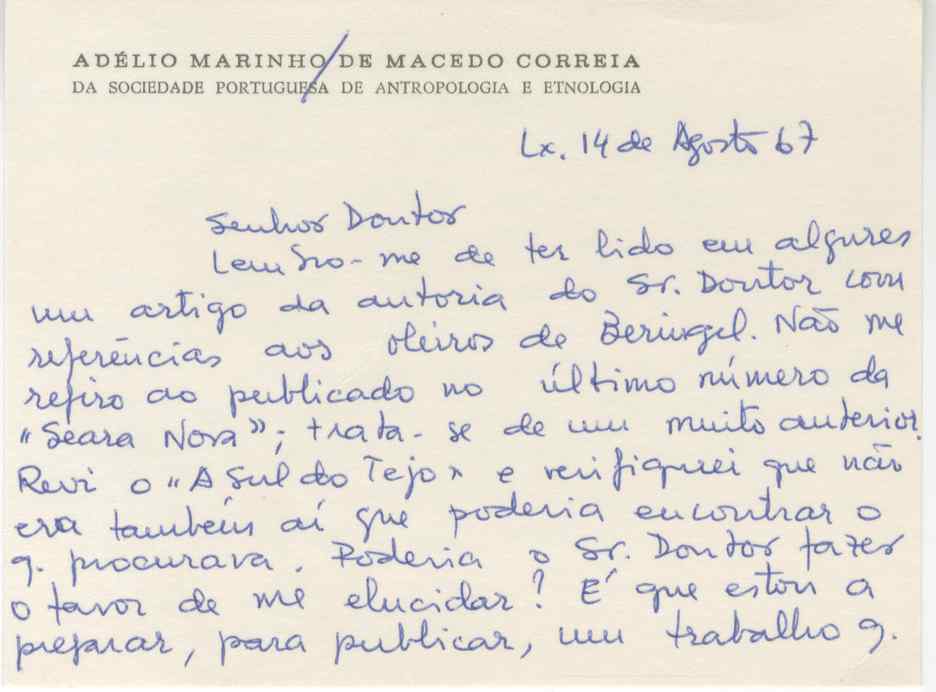 ADÉLIO MARINHO DE MACEDO CORREIA
DA SOCIEDADE PORTUGUESA DE ANTROPOLOGIA E ETNOLOGIA
Lx. 14 de Agosto 67
Senhor Doutor
Lembro-me de ter lido em algures
um artigo da autoria do Sr. Doutor com
referências aos oleiros de Beringel. Não me
refiro ao publicado no último número da
"Seara Nova"; trata-se de um muito anterior.
Revi o "A Sul do Tejo" e verifiquei que não
era também aí que poderia encontrar o
q. procurava. Poderia o Sr. Doutor fazer
o favor de me elucidar? É que estou a
preparar, para publicar, um trabalho q.